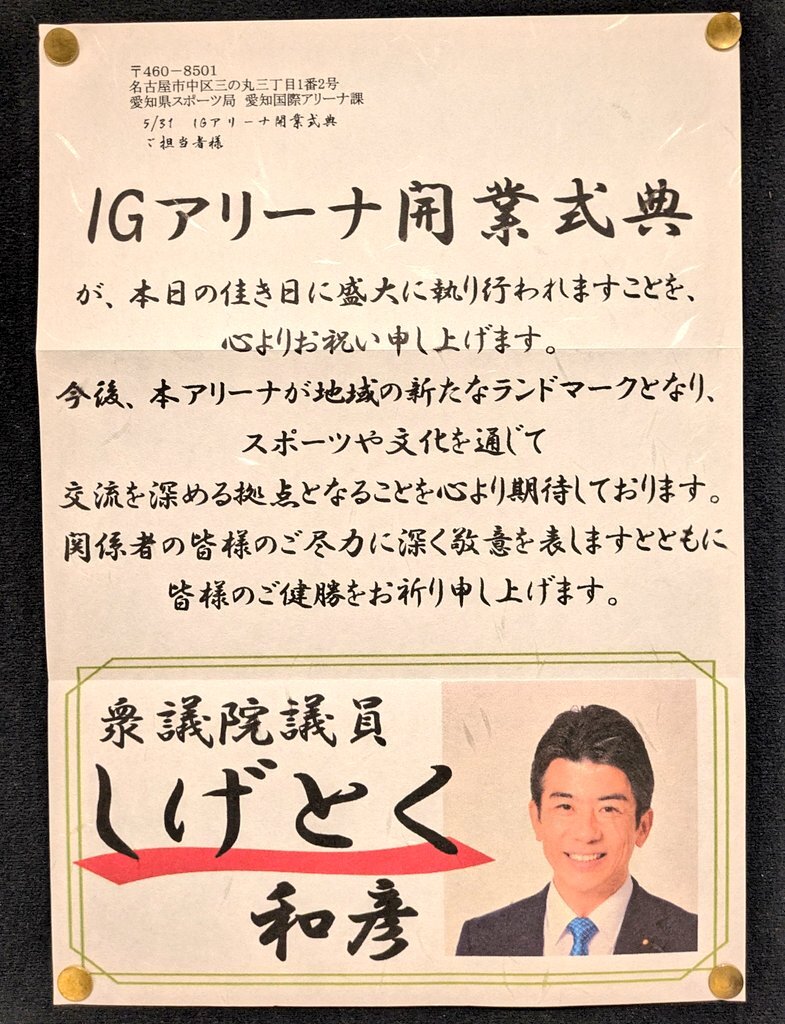 〒460－8501
名古屋市中区三の丸三丁目1番2号
愛知県スポーツ局 愛知国際アリーナ課
5/31 IGアリーナ開業式典
ご担当者様
IGアリーナ開業式典
が、本日の佳き日に盛大に執り行われますことを、
心よりお祝い申し上げます。
今後、本アリーナが地域の新たなランドマークとなり、
スポーツや文化を通じて
交流を深める拠点となることを心より期待しております。
関係者の皆様のご尽力に深く敬意を表しますとともに
皆様のご健勝をお祈り申し上げます。
衆議院議員
しげとく
和彦